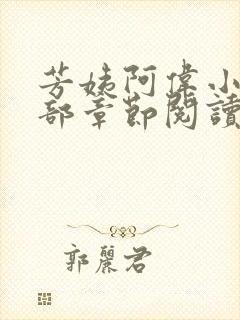 芳姨阿偉小
部章節閱讀
郭麗君